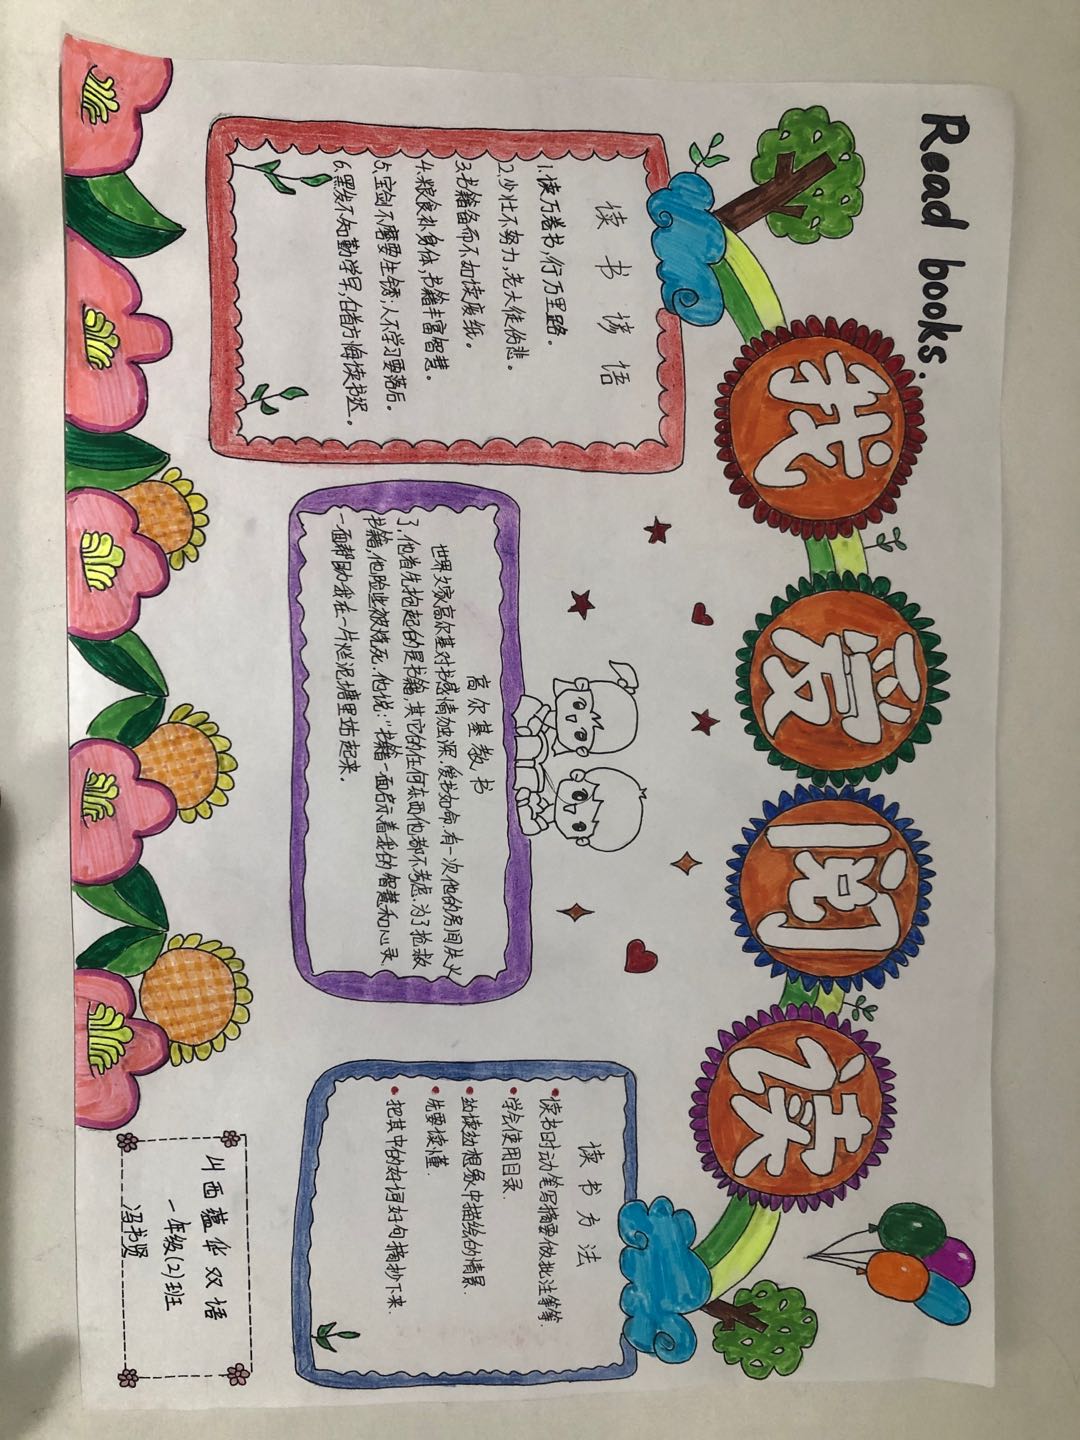 Read books.
我爱阅读
读书谚语
1.读万卷书,行万里路。
2.少壮不努力,老大徒伤悲。
3.书籍备而不如读废纸。
4.粮食补身体,书籍丰富智慧。
5.宝剑不磨要生锈;人不学习要落后。
6.黑发不知勤学早,白首方悔读书迟。
高尔基救书
世界文家高尔基对书感情加深,爱书如命,有一次他的房间失火
了,他首先抢起的是书籍,其它的任何东西他都不考虑,为了抢救
书籍,他险些被烧死,他说:"书籍一面启示着我的智慧和心灵
一面帮助我在一片烂泥塘里站起来.
读书方法
读书时动笔写摘要做批注等等.
学会使用目录.
幼读幼想象中描绘的情景.
先要读懂.
把其中的好词好句摘抄下来.
山西蕴华双语
一年级(2)班
冯书贤